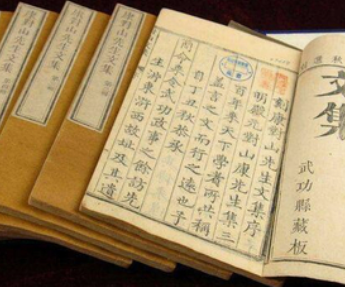 文集
武功縣藏板
刻康對山先生文集序
明殿元對山康先生集三
百年來天下學者所共稱
蓋言之文而行之遠也予
丁丑秋恭承
命來令武功政事之餘訪先
生滸東滸西故址及其遺
康對山先生文集
康對山先生文集